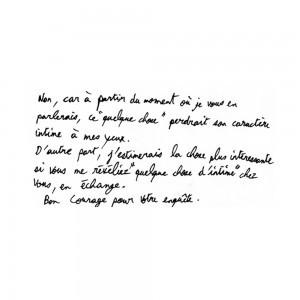 Non, car à partir du moment où je vous en
parlerais, ce "quelque chose" perdrait son caractère
intime à mes yeux.
D'autre part, j'estimerais la chose plus interessante
si vous me révéliez "quelque chose d'intime" chez
vous, en échange.
Bon courage pour votre enquête.